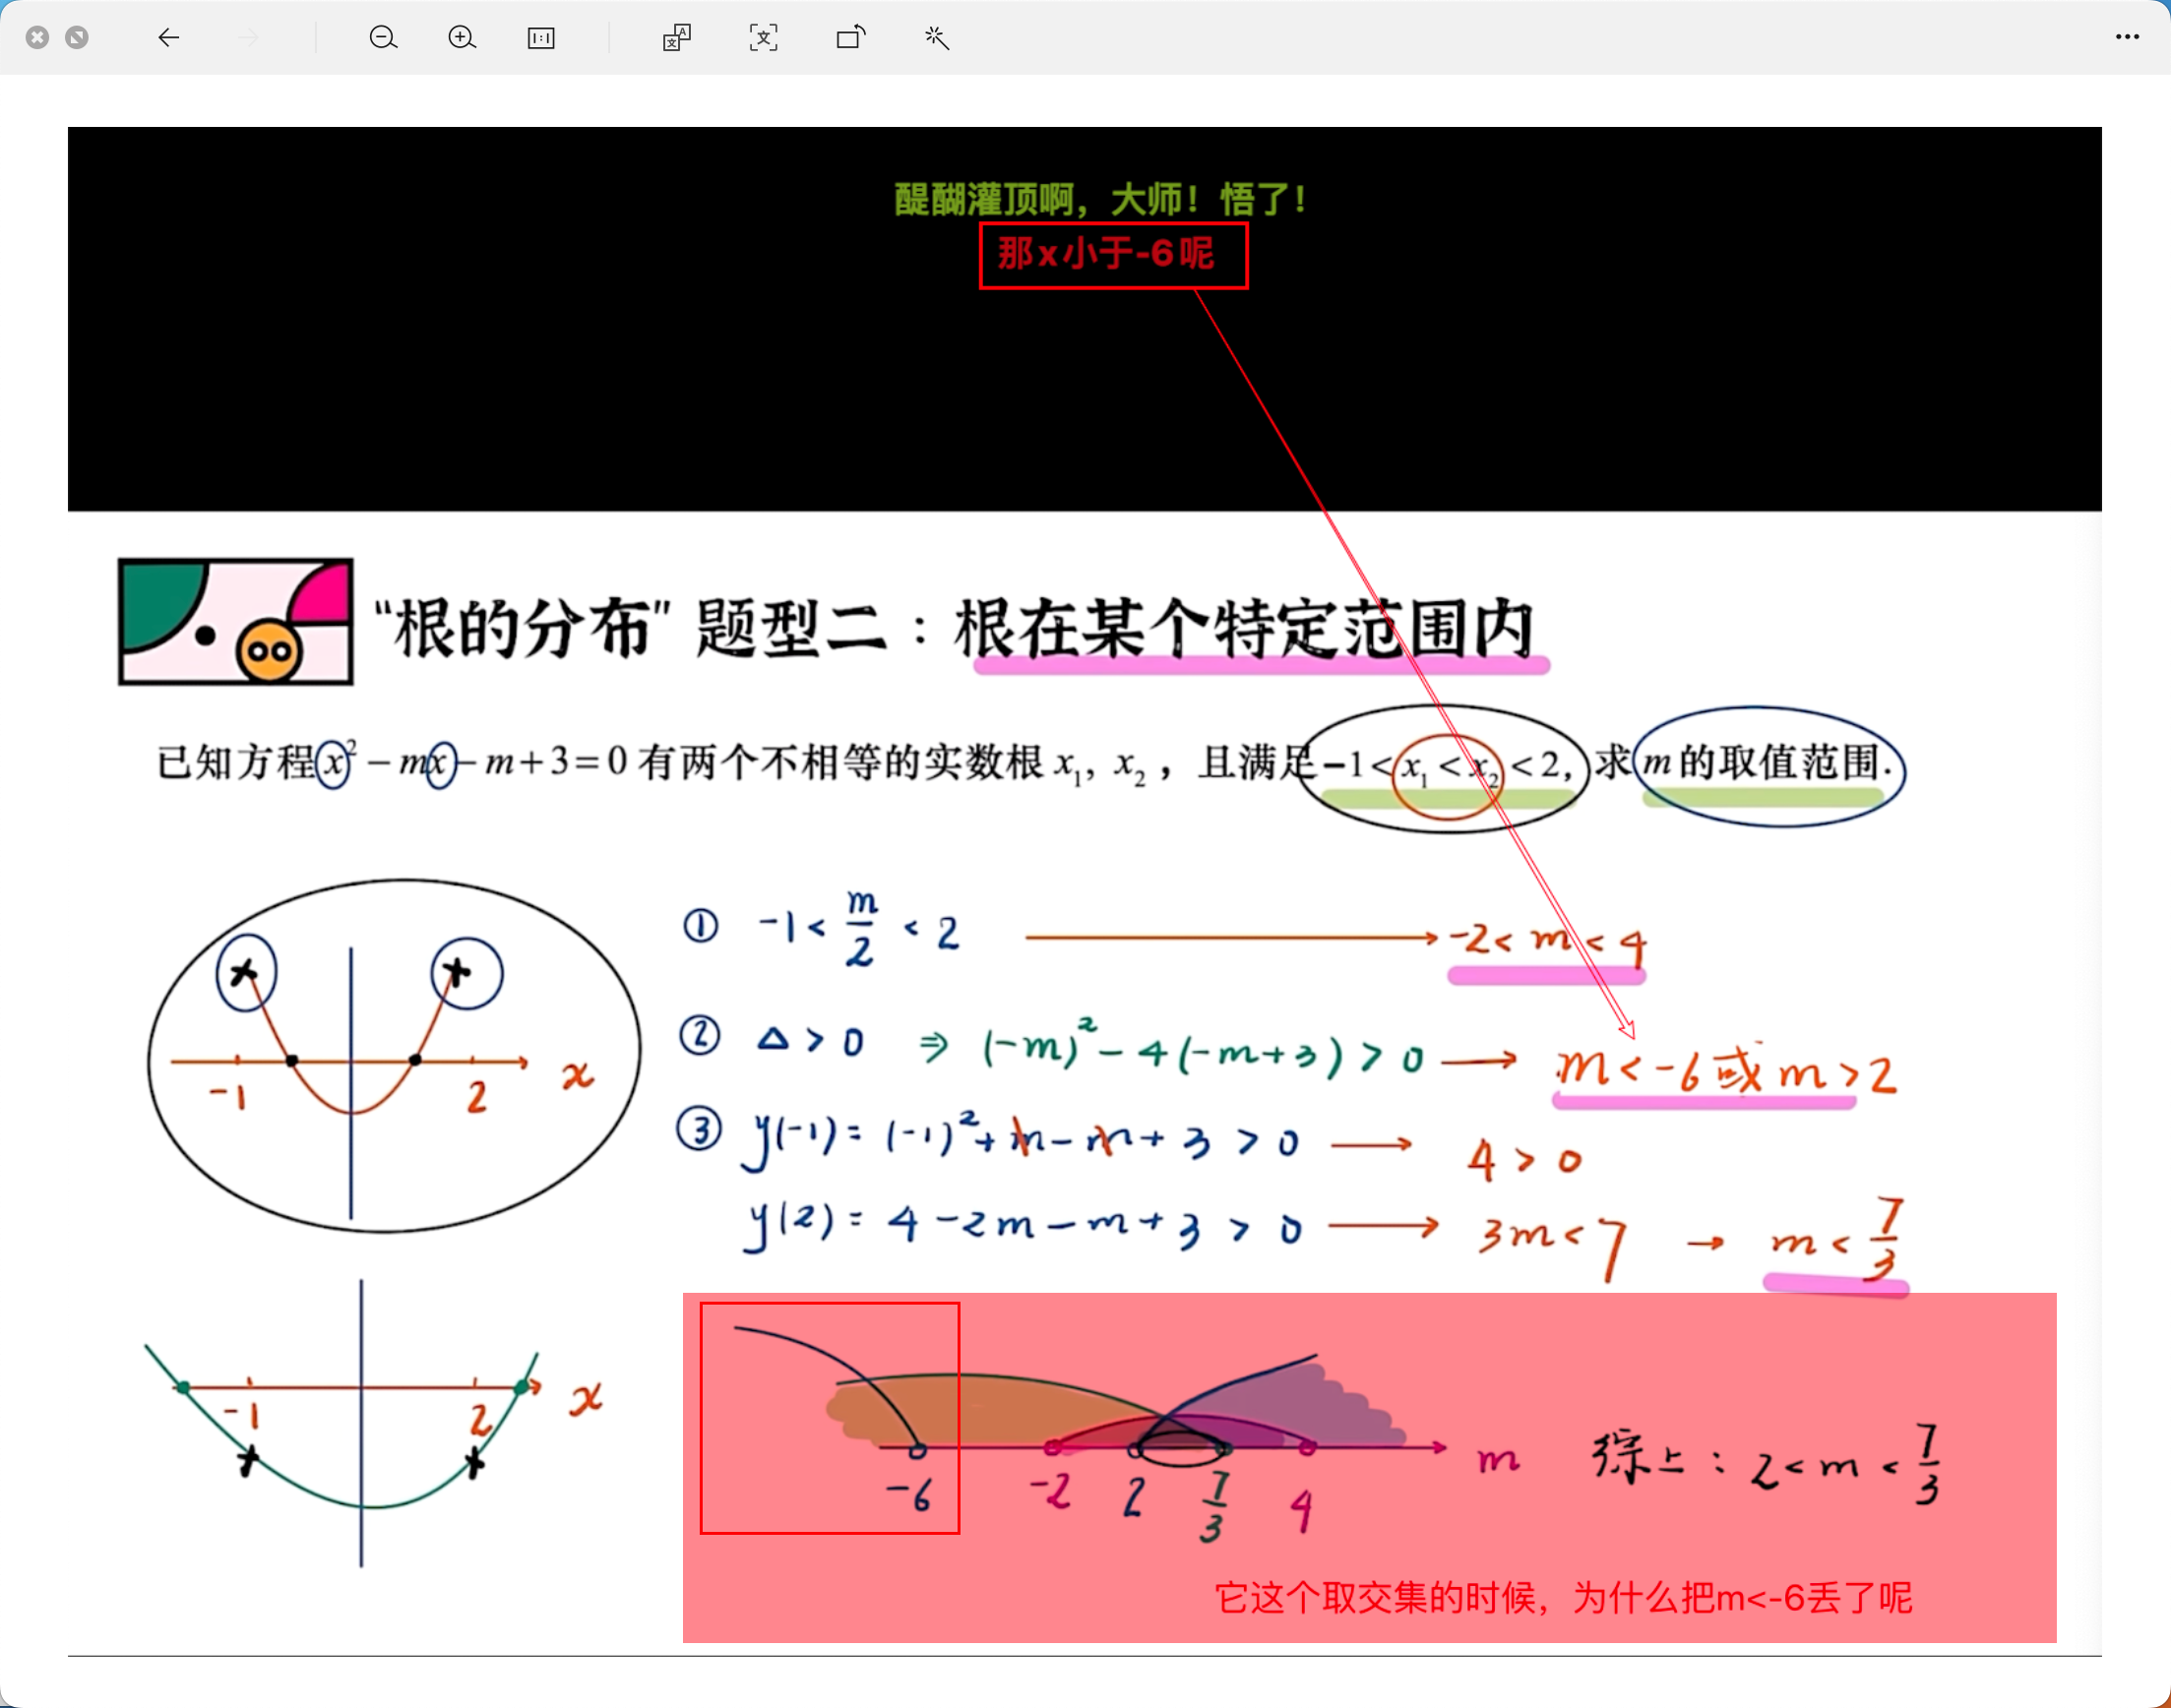 醍醐灌顶啊，大师！悟了！
那x小于-6呢
“根的分布”题型二：根在某个特定范围内
已知方程x²－mx－m＋3＝0有两个不相等的实数根x₁，x₂，且满足－1＜x₁＜x₂＜2，求m的取值范围.
① -1 < m/2 < 2 → -2 < m < 4
② Δ > 0 ⇒ (-m)² - 4(-m+3) > 0 → m < -6 或 m > 2
③ y(-1) = (-1)² + m - m + 3 > 0 → 4 > 0
y(2) = 4 - 2m - m + 3 > 0 → 3m < 7 → m < 7/3
-1 2 x
-1 2 x
-6 -2 2 7/3 4 m
综上：2 < m < 7/3
它这个取交集的时候，为什么把m<-6丢了呢